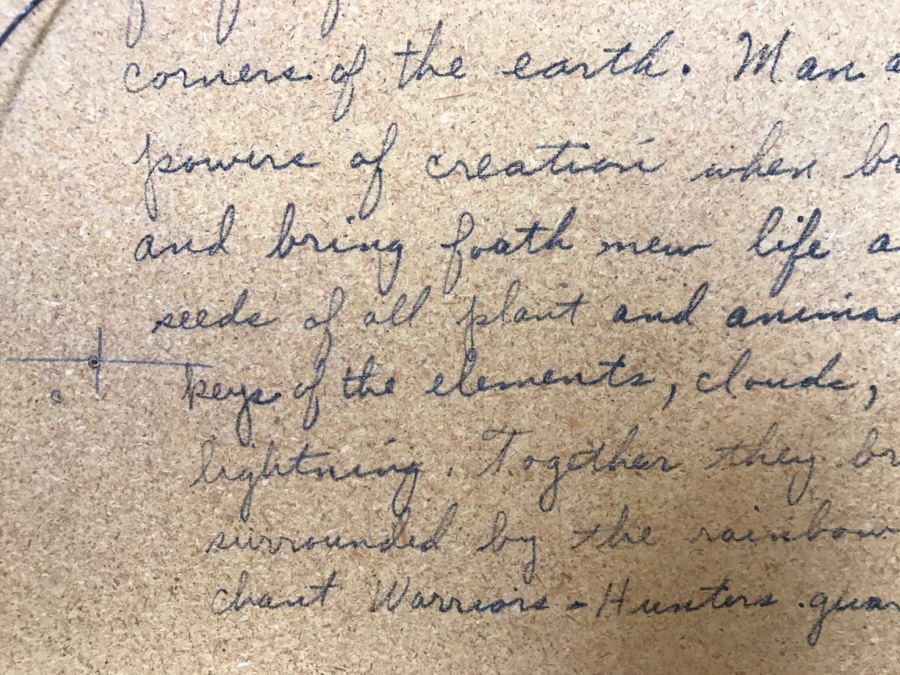 corners of the earth. Man a
powers of creation when br
and bring foath new life a
seeds of all plant and anima
keys of the elements, clouds,
lightning. Together they br
surrounded by the rainbow
chant Warriors - Hunters guar